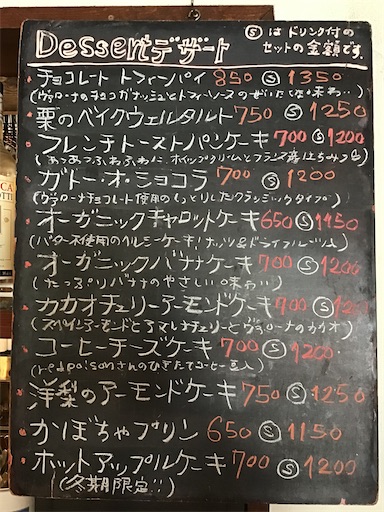 Dessert デザート
Ⓢは ドリンク付の
セットの金額です。
チョコレート トフィーパイ 850 Ⓢ 1350
(ヴァローナのチョコガナッシュとトフィーソースの
栗のベイクウェルタルト 750 Ⓢ 1250
フレンチトーストパンケーキ 700 Ⓢ 1200
(あつあつふわふわに、ホイップクリームとフランス産はちみつ
ガトー・オ・ショコラ 700 Ⓢ 1200
(ヴァローナチョコレート使用のしっとりしたクラシックタイプ)
オーガニックキャロットケーキ 650 Ⓢ 1150
(バター不使用のヘルシーケーキ！ナッツ&ドライフルーツ入)
オーガニックバナナケーキ 700 Ⓢ 1200
(たっぷりバナナのやさしい味わい)
カカオチェリーアーモンドケーキ 700 Ⓢ 1200
(スペインアーモンドとアマレナチェリーとヴァローナのカカオ)
コーヒーチーズケーキ 700 Ⓢ 1200
(redpoisonさんのひきたてコーヒー豆入)
洋梨のアーモンドケーキ 750 Ⓢ 1250
かぼちゃプリン 650 Ⓢ 1150
ホットアップルケーキ 700 Ⓢ 1200
(冬期限定!!)